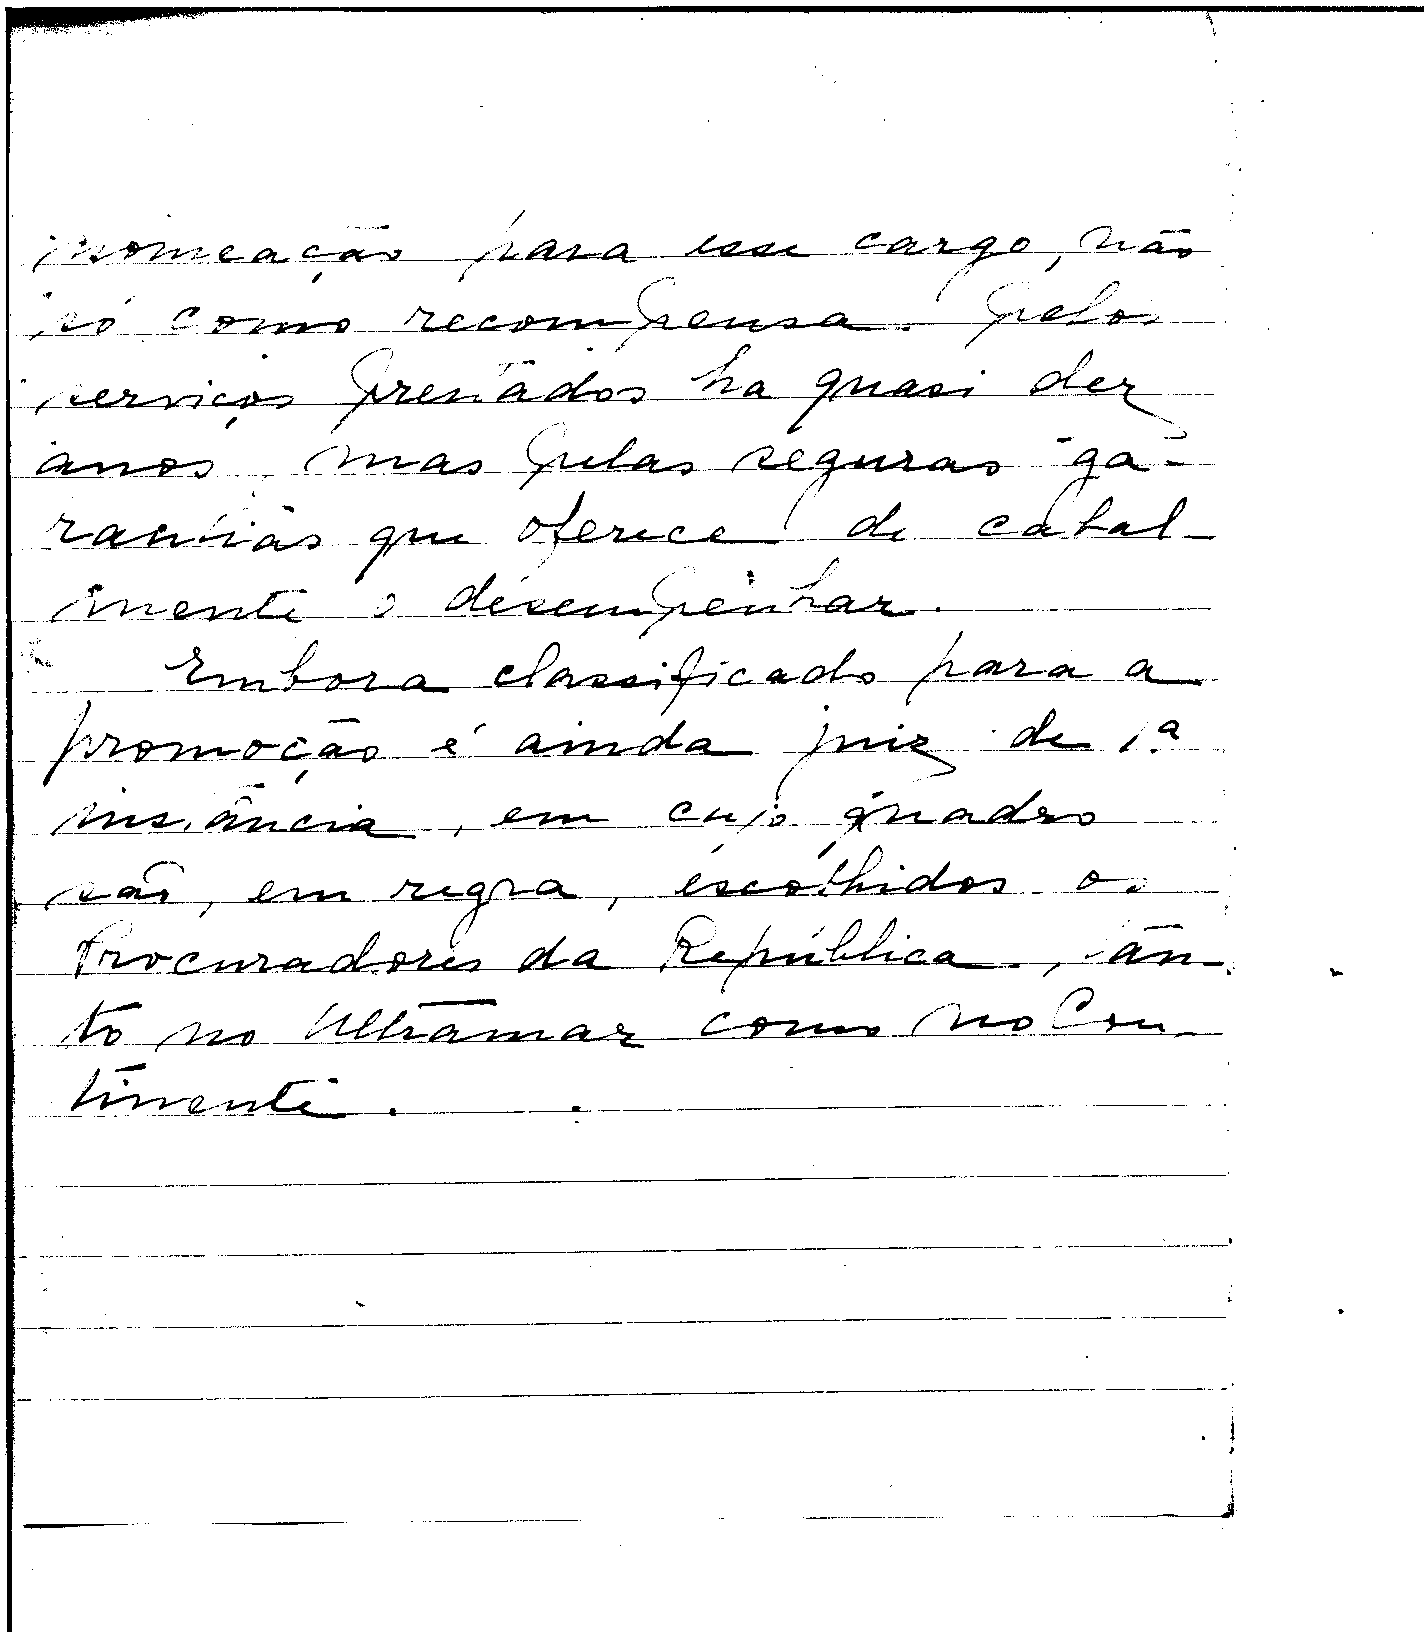 nomeação para esse cargo, não
só como recompensa pelos
serviços prestados ha quasi dez
anos, mas pelas seguras ga-
rantias que oferece de cabal-
mente o desempenhar.
Embora classificado para a
promoção é ainda juiz de 1ª
instância, em cujo quadro
são, em regra, escolhidos os
Procuradores da República, tan-
to no Ultramar como no Con-
tinente.